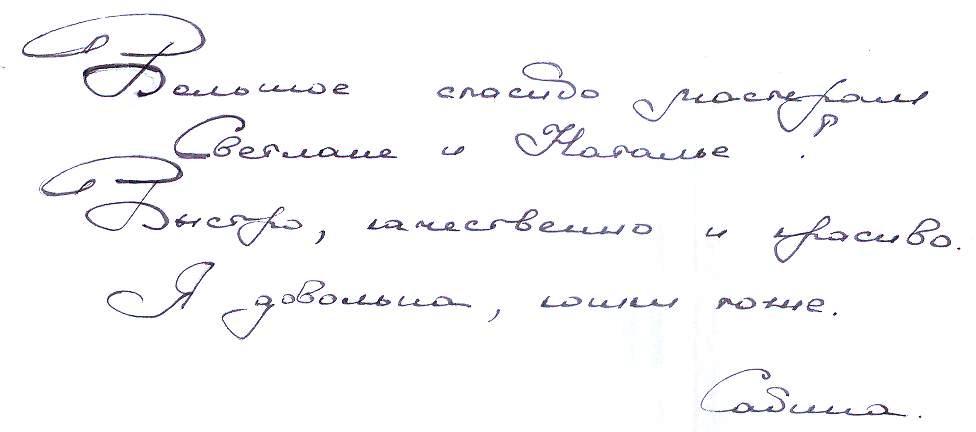 Большое спасибо мастерам
Светлане и Наталье!
Быстро, качественно и красиво.
Я довольна, кошки тоже.
Сабина.